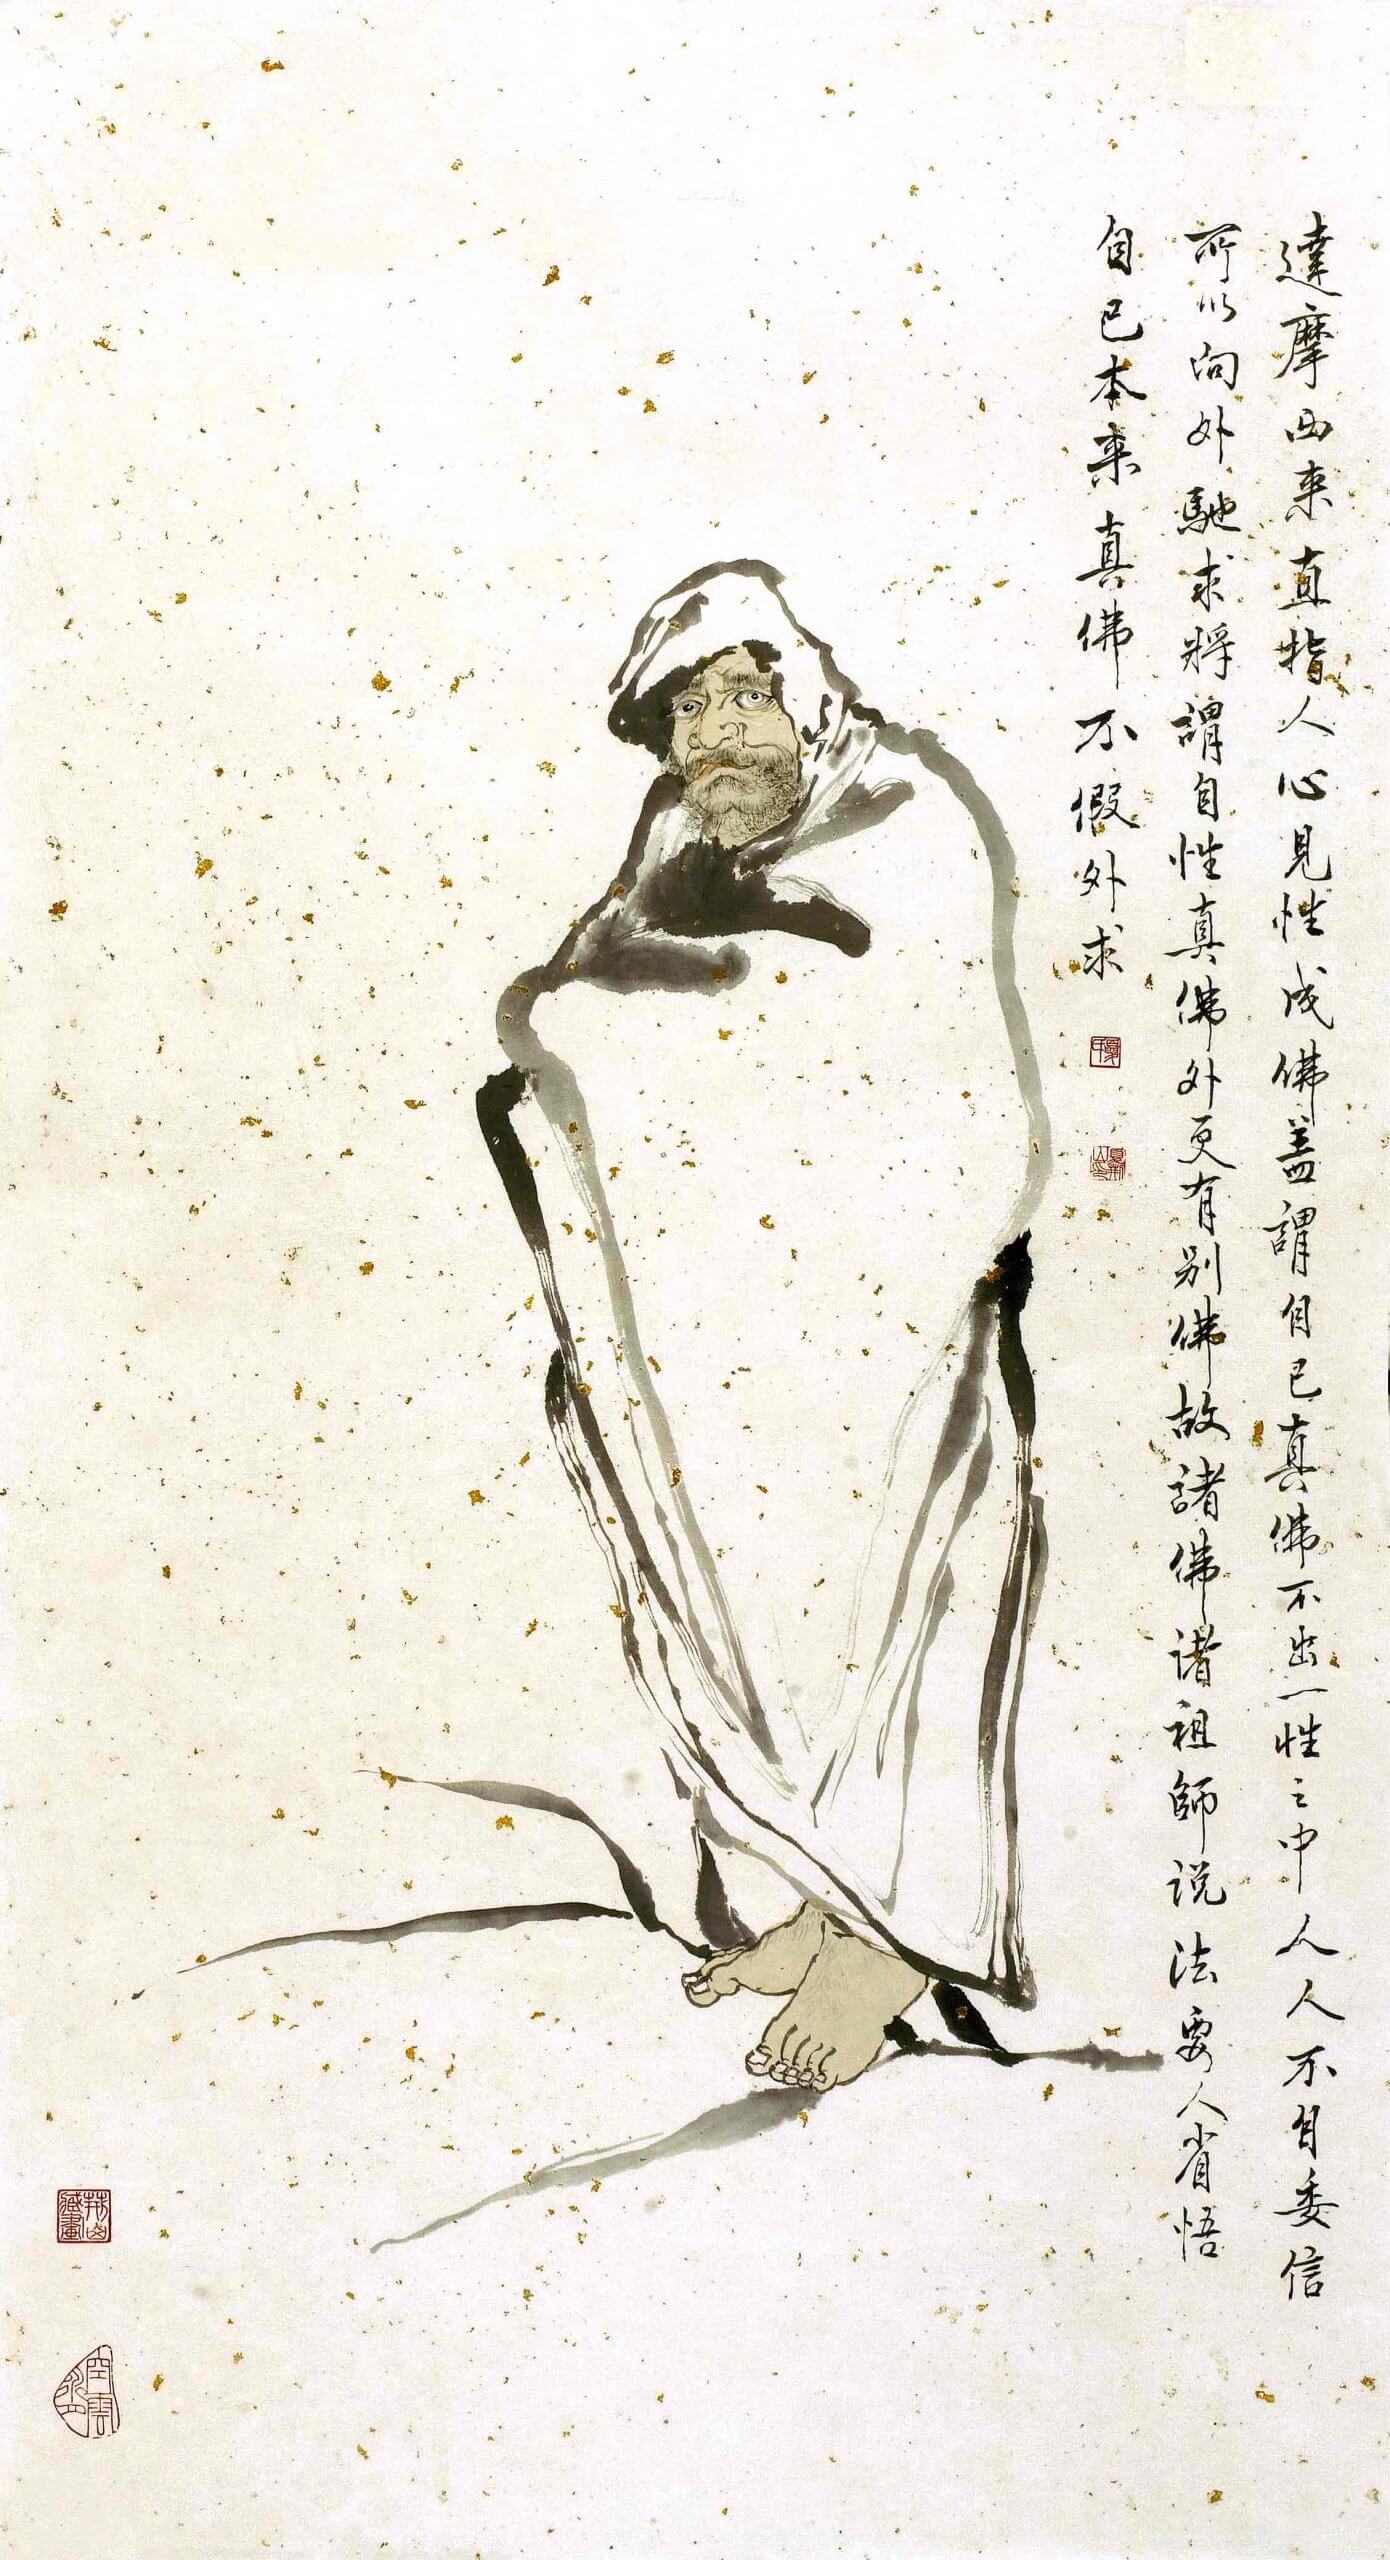 達摩西来直指人心見性成佛盖謂自己真佛不出一性之中人人不自委信
所以向外馳求将謂自性真佛外更有别佛故諸佛诸祖師説法要人省悟
自己本来真佛不假外求